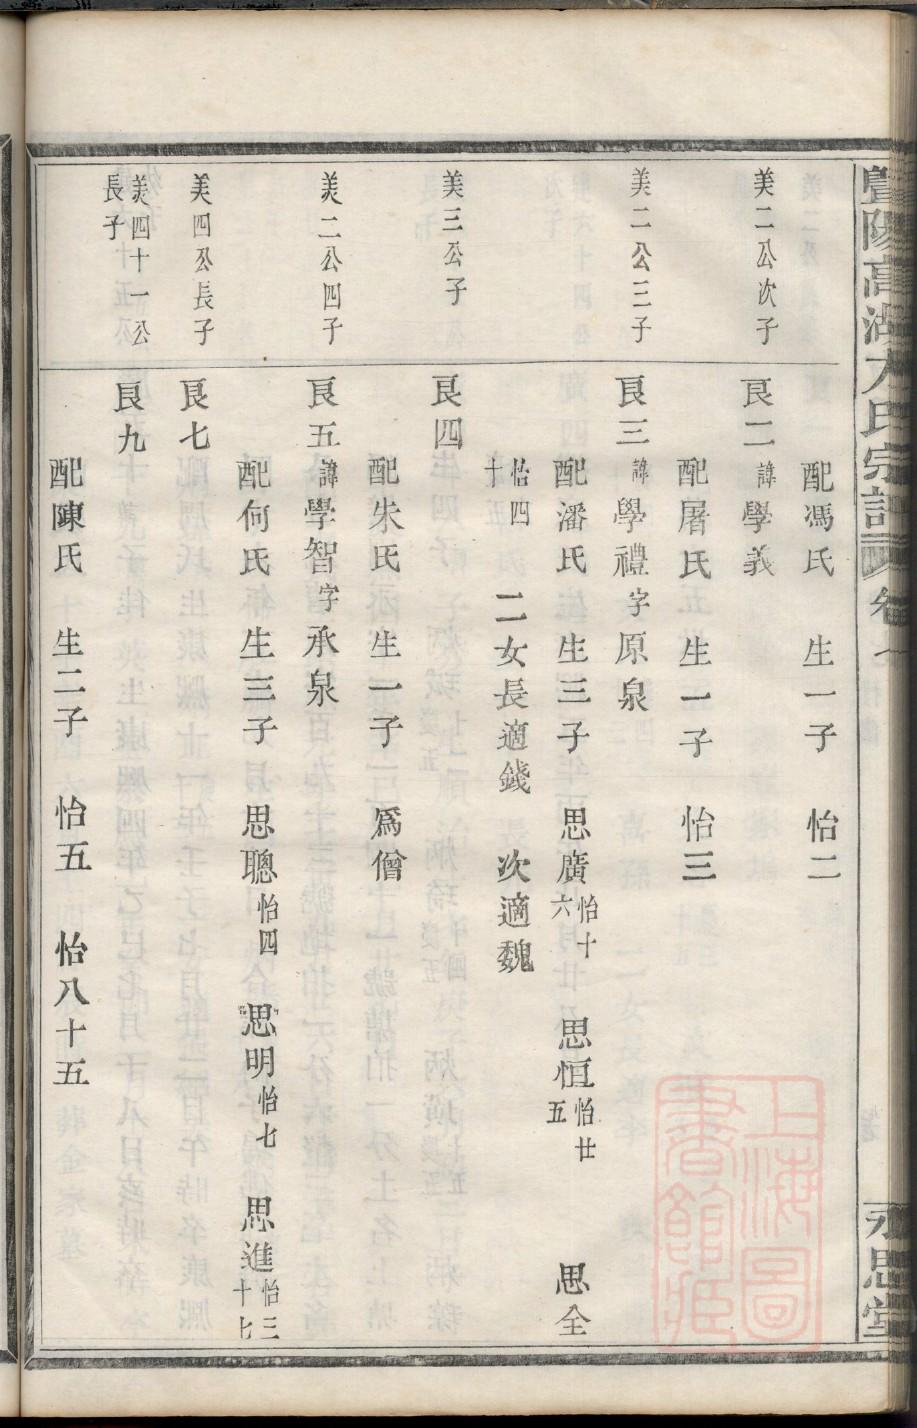 暨陽高湖方氏宗譜 卷
永思堂
配馮氏 生一子 怡二
美二公次子 良二諱學義
配屠氏 生一子 怡三
美二公三子 良三諱學禮字原泉
配潘氏 生三子 思廣怡十六 思恒怡廿五 思全
怡四十 二女長適錢 次適魏
美三公子 良四
配朱氏 生一子 爲僧
美二公四子 良五諱學智字承泉
配何氏 生三子 思聰怡四 思明怡七 思進怡三十七
美四公長子 良七
美四十一公長子 良九
配陳氏 生二子 怡五 怡八十五
上海圖書館藏